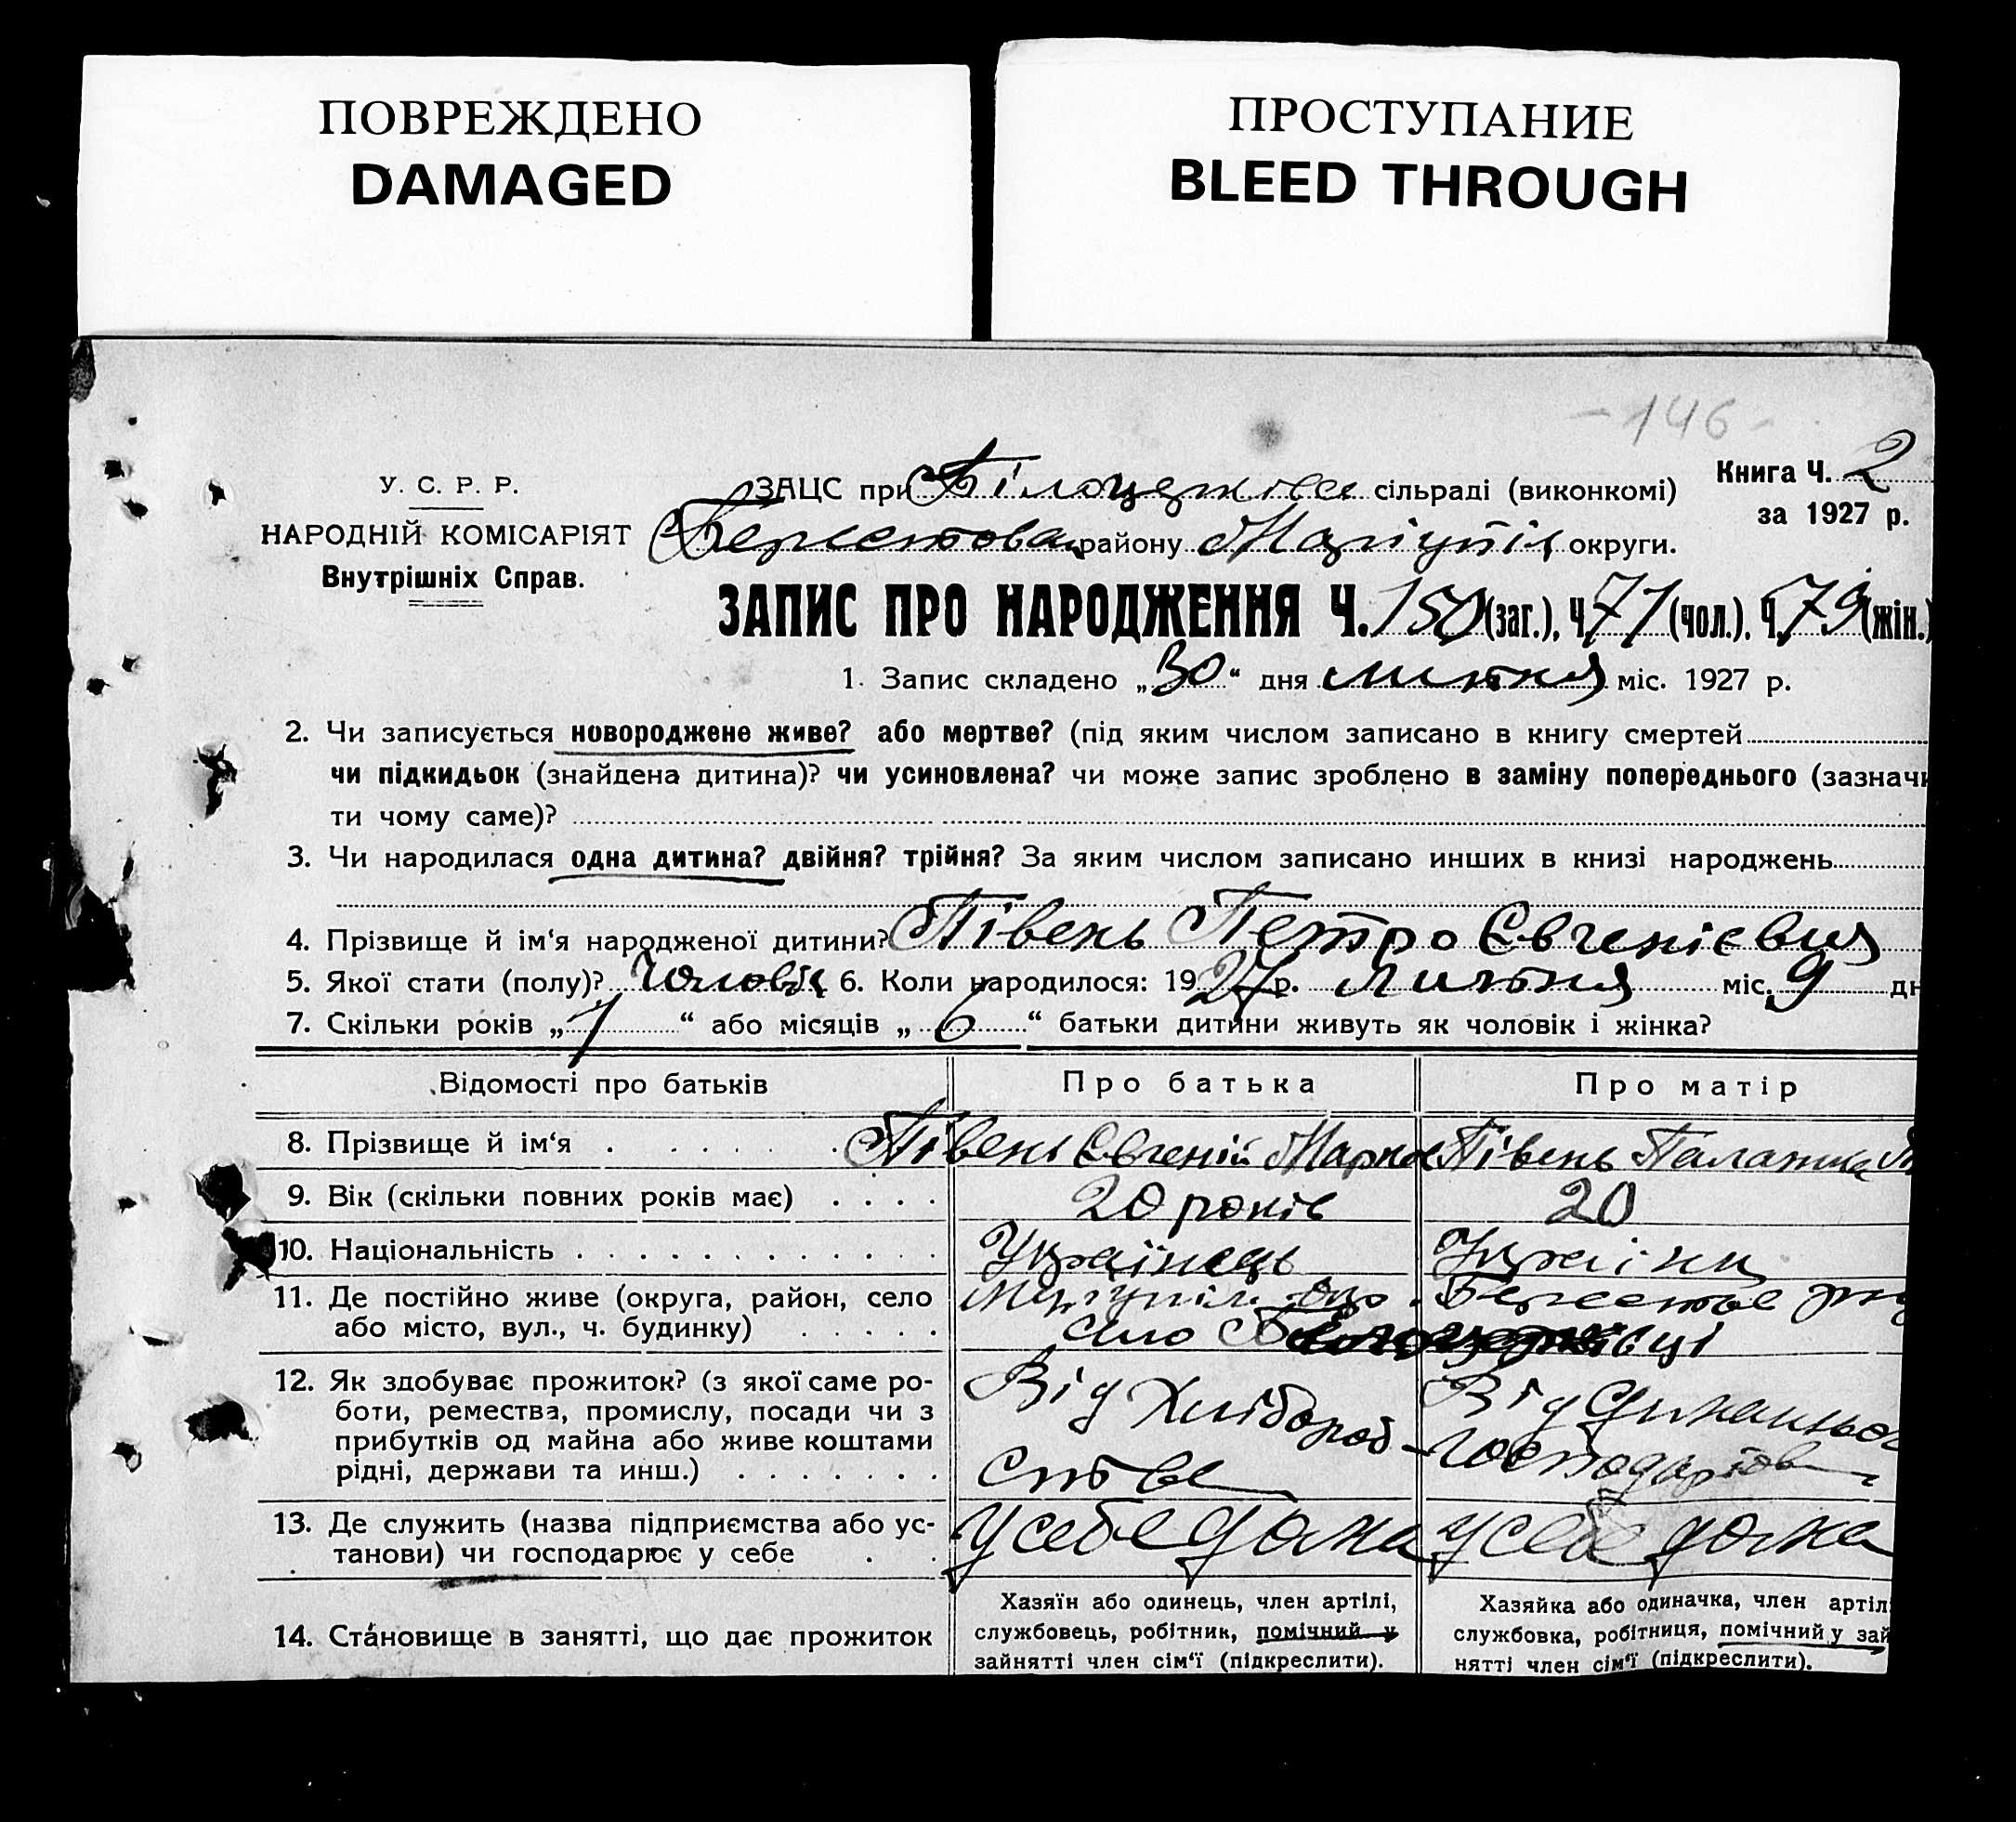 ПОВРЕЖДЕНО
DAMAGED
ПРОСТУПАНИЕ
BLEED THROUGH
- 146 -
У. С. Р. Р.
НАРОДНІЙ КОМІСАРІЯТ
Внутрішніх Справ.
Книга Ч. 2
за 1927 р.
ЗАЦС при сільраді (виконкомі)
району Маріупіл округи.
ЗАПИС ПРО НАРОДЖЕННЯ Ч. 150 (заг.), Ч. 71 (чол.), Ч. 79 (жін.)
1. Запис складено „30“ дня липня міс. 1927 р.
2. Чи записується новороджене живе? або мертве? (під яким числом записано в книгу смертей
чи підкидьок (знайдена дитина)? чи усиновлена? чи може запис зроблено в заміну попереднього (зазначи
ти чому саме)?
3. Чи народилася одна дитина? двійня? трійня? За яким числом записано инших в книзі народжень
4. Прізвище й ім‘я народженої дитини? Півень Петро Євгенієвич
5. Якої стати (полу)? Чоловіч 6. Коли народилося: 1927 р. липня міс. 9 дн
7. Скільки років „1“ або місяців „6“ батьки дитини живуть як чоловік і жінка?
Відомості про батьків Про батька Про матір
8. Прізвище й ім‘я Півень Євгеній Марков Півень Палажка
9. Вік (скільки повних років має) 20 років 20
10. Національність Українець Українка
11. Де постійно живе (округа, район, село Маріупіл. окр. Берестове
або місто, вул., ч. будинку) село
12. Як здобуває прожиток? (з якої саме ро-
боти, ремества, промислу, посади чи з
прибутків од майна або живе коштами
рідні, держави та инш.)
Від Хлібороб-
ства
Від
господарства
13. Де служить (назва підприємства або ус-
танови) чи господарює у себе
у себе дома у себе дома
14. Становище в занятті, що дає прожиток
Хазяїн або одинець, член артілі,
службовець, робітник, помічний у
зайнятті член сім‘ї (підкреслити).
Хазяйка або одиначка, член артіл
службовка, робітниця, помічний у зай
нятті член сім‘ї (підкреслити).